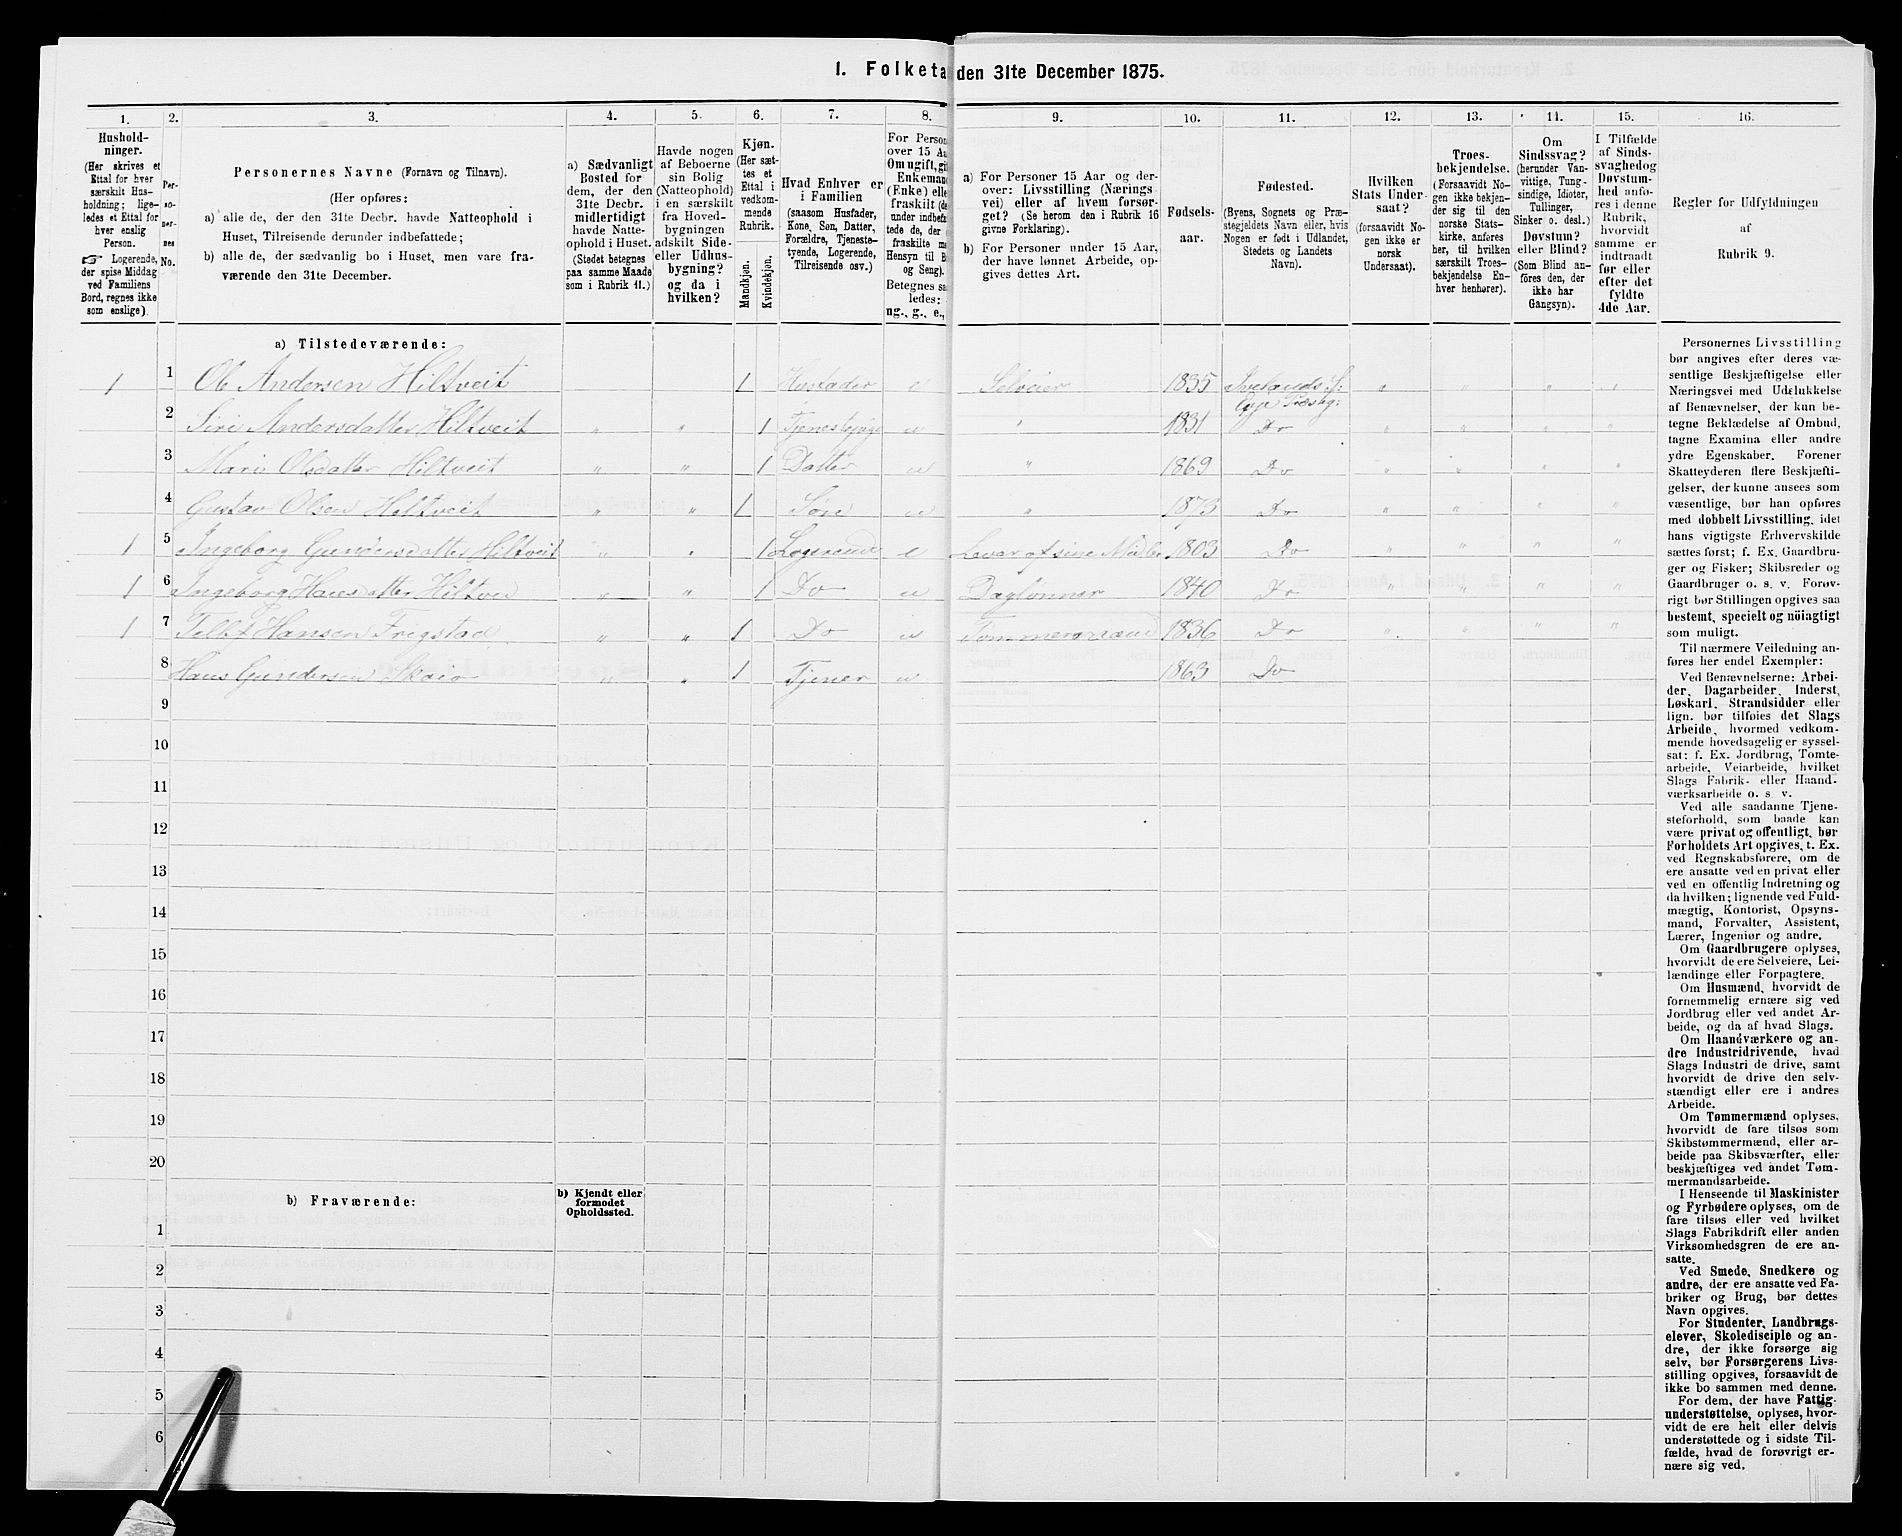 1. Folketa den 31te December 1875.
1.
Hushold-
ninger.
(Her skrives et
Ettal for hver
særskilt Hus-
holdning; lige-
ledes et Ettal for
hver enslig
Person.
☞ Logerende,
der spise Middag
ved Familiens
Bord, regnes ikke
som enslige).
2.
Per-
so-
ner-
nes
No.
3.
Personernes Navne (Fornavn og Tilnavn).
(Her opføres:
a) alle de, der den 31te Decbr. havde Natteophold i
Huset, Tilreisende derunder indbefattede;
b) alle de, der sædvanlig bo i Huset, men vare fra-
værende den 31te December.
4.
a) Sædvanligt
Bosted for
dem, der den
31te Decbr.
midlertidigt
havde Natte-
ophold i Huset.
(Stedet betegnes
paa samme Maade
som i Rubrik 11.)
5.
Havde nogen
af Beboerne
sin Bolig
(Natteophold)
i en særskilt
fra Hoved-
bygningen
adskilt Side-
eller Udhus-
bygning?
og da i
hvilken?
6.
Kjøn.
(Her sæt-
tes et
Ettal i
vedkom-
mende
Rubrik.
Mandkjøn.
Kvindekjøn.
7.
Hvad Enhver er
i Familien
(saasom Husfader,
Kone, Søn, Datter,
Forældre, Tjeneste-
tyende, Logerende,
Tilreisende osv.)
8.
For Person
over 15 Aa
Om ugift, gi
Enkeman
(Enke) elle
fraskilt (de
under indbefa
tede de, der
fraskilte m
Hensyn til B
og Seng).
Betegnes sa
ledes:
ug., g., e.,
9.
a) For Personer 15 Aar og der-
over: Livsstilling (Nærings-
vei) eller af hvem forsør-
get? (Se herom den i Rubrik 16
givne Forklaring).
b) For Personer under 15 Aar,
der have lønnet Arbeide, op-
gives dettes Art.
10.
Fødsels-
aar.
11.
Fødested.
(Byens, Sognets og Præ-
stegjeldets Navn eller, hvis
Nogen er født i Udlandet,
Stedets og Landets
Navn).
12.
Hvilken
Stats Under-
saat?
(forsaavidt No-
gen ikke er
norsk
Undersaat).
13.
Troes-
bekjendelse.
(Forsaavidt No-
gen ikke bekjen-
der sig til den
norske Stats-
kirke, anføres
her, til hvilken
særskilt Troes-
bekjendelse En-
hver henhører).
14.
Om
Sindssvag?
(herunder Van-
vittige, Tung-
sindige, Idioter,
Tullinger,
Sinker o. desl.)
Døvstum?
eller Blind?
(Som Blind an-
føres den, der
ikke har
Gangsyn).
15.
I Tilfælde
af Sinds-
svaghed og
Døvstum-
hed anfø-
res i denne
Rubrik,
hvorvidt
samme er
indtraadt
før eller
efter det
fyldte
4de Aar.
16.
Regler for Udfyldningen
af
Rubrik 9.
a) Tilstedeværende:
1 1 Ole Andersen Hiltveit 1 Husfader e Selveier 1835 Ivelands S: Evje Præstg:
2 Siri Andersdatter Hiltveit " " 1 u " 1831 Do " " " "
3 Mari Olsdatter Hiltveit " " 1 Datter u " 1869 Do " " " "
4 Gustav Olsen Hiltveit " " 1 Søn u " 1873 Do " " " "
1 5 Ingeborg Gundersdatter Hiltveit " " 1 Logerende e Lever af sine Midler 1803 Do " " " "
1 6 Ingeborg Hansdatter Hiltveit " " 1 Do u Daglønner 1840 Do " " " "
1 7 Hansen Frigstad " " 1 Do u Tømmermand 1836 Do " " " "
8 Hans Gundersen " " 1 Tjener u 1863 Do
9
10
11
12
13
14
15
16
17
18
19
20
b) Fraværende:
b) Kjendt eller
formodet
Opholdssted.
1
2
3
4
5
6
Personernes Livsstilling
bør angives efter deres væ-
sentlige Beskjæftigelse eller
Næringsvei med Udelukkelse
af Benævnelser, der kun be-
tegne Beklædelse af Ombud,
tagne Examina eller andre
ydre Egenskaber. Forener
Skatteyderen flere Beskjæfti-
gelser, der kunne ansees som
væsentlige, bør han opføres
med dobbelt Livsstilling, idet
hans vigtigste Erhvervskilde
sættes først; f. Ex. Gaardbru-
ger og Fisker; Skibsreder og
Gaardbruger o. s. v. Forøv-
rigt bør Stillingen opgives saa
bestemt, specielt og nöiagtigt
som muligt.
Til nærmere Veiledning an-
føres her endel Exempler:
Ved Benævnelserne: Arbei-
der, Dagarbeider, Inderst,
Løskarl, Strandsidder eller
lign. bør tilføies det Slags
Arbeide, hvormed vedkom-
mende hovedsagelig er syssel-
sat: f. Ex. Jordbrug, Tomte-
arbeide, Veiarbeide, hvilket
Slags Fabrik- eller Haand-
værksarbeide o. s. v.
Ved alle saadanne Tjene-
steforhold, som baade kan
være privat og offentligt, bør
Forholdets Art opgives, t. Ex.
ved Regnskabsførere, om de
ere ansatte ved en privat eller
ved en offentlig Indretning og
da hvilken; lignende ved Fuld-
mægtig, Kontorist, Opsyns-
mand, Forvalter, Assistent,
Lærer, Ingeniør og andre.
Om Gaardbrugere oplyses,
hvorvidt de ere Selveiere, Lei-
lændinge eller Forpagtere.
Om Husmænd, hvorvidt de
fornemmelig ernære sig ved
Jordbrug eller ved andet Ar-
beide, og da af hvad Slags.
Om Haandværkere og an-
dre Industridrivende, hvad
Slags Industri de drive, samt
hvorvidt de drive den selv-
stændigt eller ere i andres
Arbeide.
Om Tømmermænd oplyses,
hvorvidt de fare tilsøs som
Skibstømmermænd, eller ar-
beide paa Skibsværfter, eller
beskjæftiges ved andet Tøm-
mermandsarbeide.
I Henseende til Maskinister
og Fyrbødere oplyses, om de
fare tilsøs eller ved hvilket
Slags Fabrikdrift eller anden
Virksomhedsgren de ere an-
satte.
Ved Smede, Snedkere og
andre, der ere ansatte ved Fa-
briker og Brug, bør dettes
Navn opgives.
For Studenter, Landbrugs-
elever, Skoledisciple og an-
dre, der ikke forsørge sig
selv, bør Forsørgerens Livs-
stilling opgives, forsaavidt de
ikke bo sammen med denne.
For dem, der have Fattig-
understøttelse, oplyses, hvor-
vidt de ere helt eller delvis
understøttede og i sidste Til-
fælde, hvad de forøvrigt er-
nære sig ved.